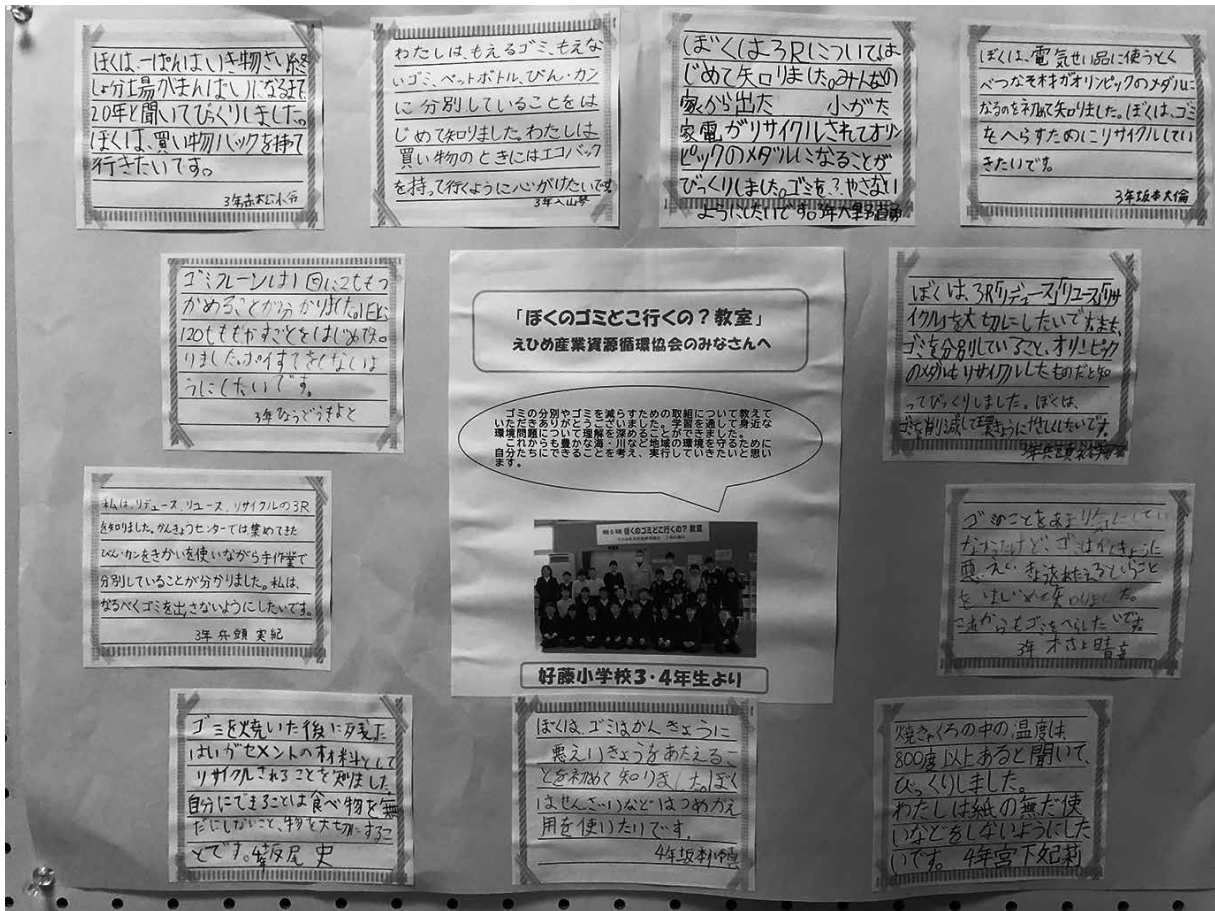 ぼくは、一ぱんはいき物さい終
しょ分場がまんぱいになるまで
20年と聞いてびっくりしました。
ぼくは、買い物バックを持って
行きたいです。
3年
わたしは、もえるゴミ、もえな
いゴミ、ペットボトル、びん・カン
に分別していることをは
じめて知りました。わたしは
買い物のときにはエコバック
を持って行くように心がけたいです
3年入山
ぼくは3Rについては
じめて矢口りました。みんなの
家から出た 小がた
家電がリサイクルされてオリン
ピックのメダルになることが
びっくりしました。ゴミを、?やさない
ようにしたいです。3年
ぼくは、電気せい品に使うとく
べつなそ材がオリンピックのメダルに
なるのを初めて知りました。ぼくは、ゴミ
をへらすためにリサイクルしてい
きたいです。
3年坂本大倫
ゴミクレーンは1回に2tもつ
かめることが分かりました。1日に
120tももやすことをはじめて知
りました。ポイすてをしないよ
うにしたいです。
3年ひょうどうきよと
「ぼくのゴミどこ行くの?教室」
えひめ産業資源循環協会のみなさんへ
ゴミの分別やゴミを減らすための取組について教えて
いただきありがとうございました。学習を通して身近な
環境問題について理解を深めることができました。
これからも豊かな海・川など地域の環境を守るために
自分たちにできることを考え、実行していきたいと思い
ます。
ぼくのゴミどこ行くの?教室
好藤小学校3・4年生より
ぼくは、3R「リデュース」「リユース」「リサ
イクル」を大切にしたいです。また、
ゴミを分別していること、オリンピック
のメダルもリサイクルしたものだと知
ってびっくりしました。ぼくは、
ゴミを削減して環きょうにやさしくしたいです。
3年兵頭
私は、リデュース、リユース、リサイクルの3R
を知りました。かんきょうセンターでは集めてきた
びん・カンをきかいを使いながら手作業で
分別していることが分かりました。私は、
なるべくゴミを出さないようにしたいです。
3年 兵頭 実紀
ゴミのことをあまり気にしてい
なかったけど、ゴミはかんきょうに
悪いえいきょうをあたえるということ
をはじめて知りました。
これからもゴミをへらしたいです
3年 村上晴
ゴミを焼いた後に残った
はいがセメントの材料として
リサイクルされることを知りました。
自分にできることは食べ物を無
だにしないこと、物を大切にするこ
とです。4年坂尾 史
ぼくは、ゴミはかんきょうに
悪えいきょうをあたえるこ
とを初めて知りました。ぼく
はせんざいなどはつめかえ
用を使いたいです。
4年坂本
焼きゃくろの中の温度は、
800度以上あると聞いて、
びっくりしました。
わたしは紙の無だ使
いなどをしないようにした
いです。 4年宮下妃莉